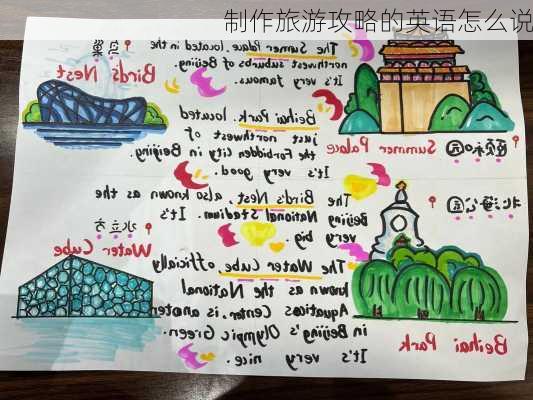 制作旅游攻略的英语怎么说
The Sumer Palace, located in the
northwest suburbs of Beijing.
It's very famous.
鸟巢
Bird's Nest
Beihai Park, located
just northwest of
the Forbidden City in Beijing.
It's very good.
颐和园
Summer Palace
The Bird's Nest, also known as the
Beijing National Stadium. It's
very big.
北海公园
水立方
Water Cube
The Water Cube officially
known as the National
Aquatics Center, is
in Beijing's Olympic Green.
It's very nice.
Beihai Park